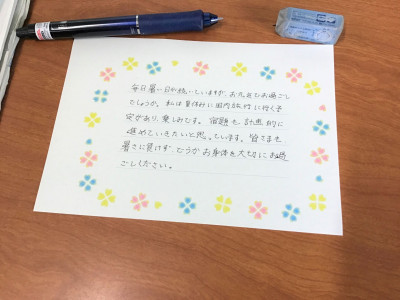 毎日暑い日が続いていますが、お元気でお過ごし
でしょうか。私は夏休みに国内旅行に行く予
定があり、楽しみです。宿題も計画的に
進めていきたいと思っています。皆さまも
暑さに負けず、どうかお身体を大切にお過
ごしください。